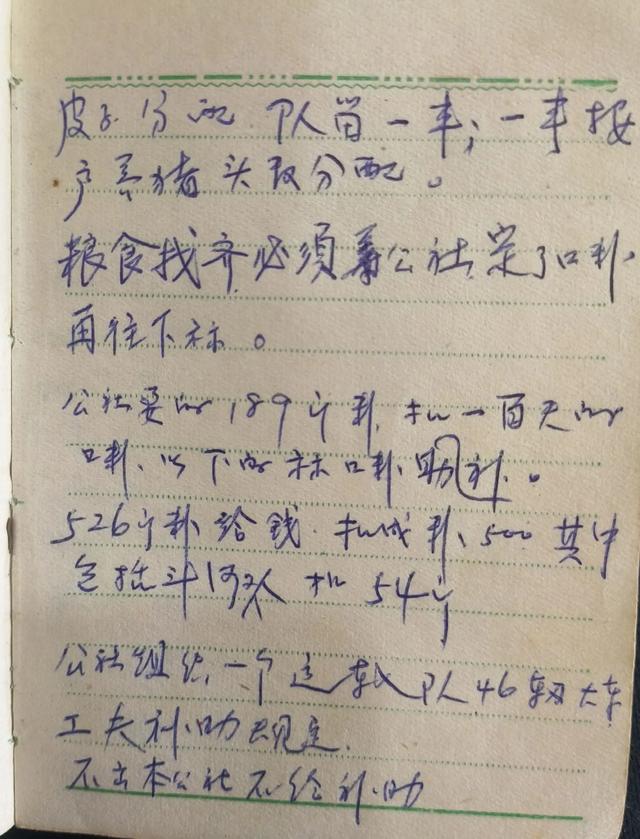 皮子分配 队留一半；一半按
户养猪头数分配。
粮食找齐必须等公社定了口料
再往下补。
公社要的189个料,扣一百天的
口料、以下的补口料补助。
526个料给钱.扣成料、500其中
包括 扣54个
公社组织一个运输队46辆大车
工夫补助规定.
不出本公社不给补助